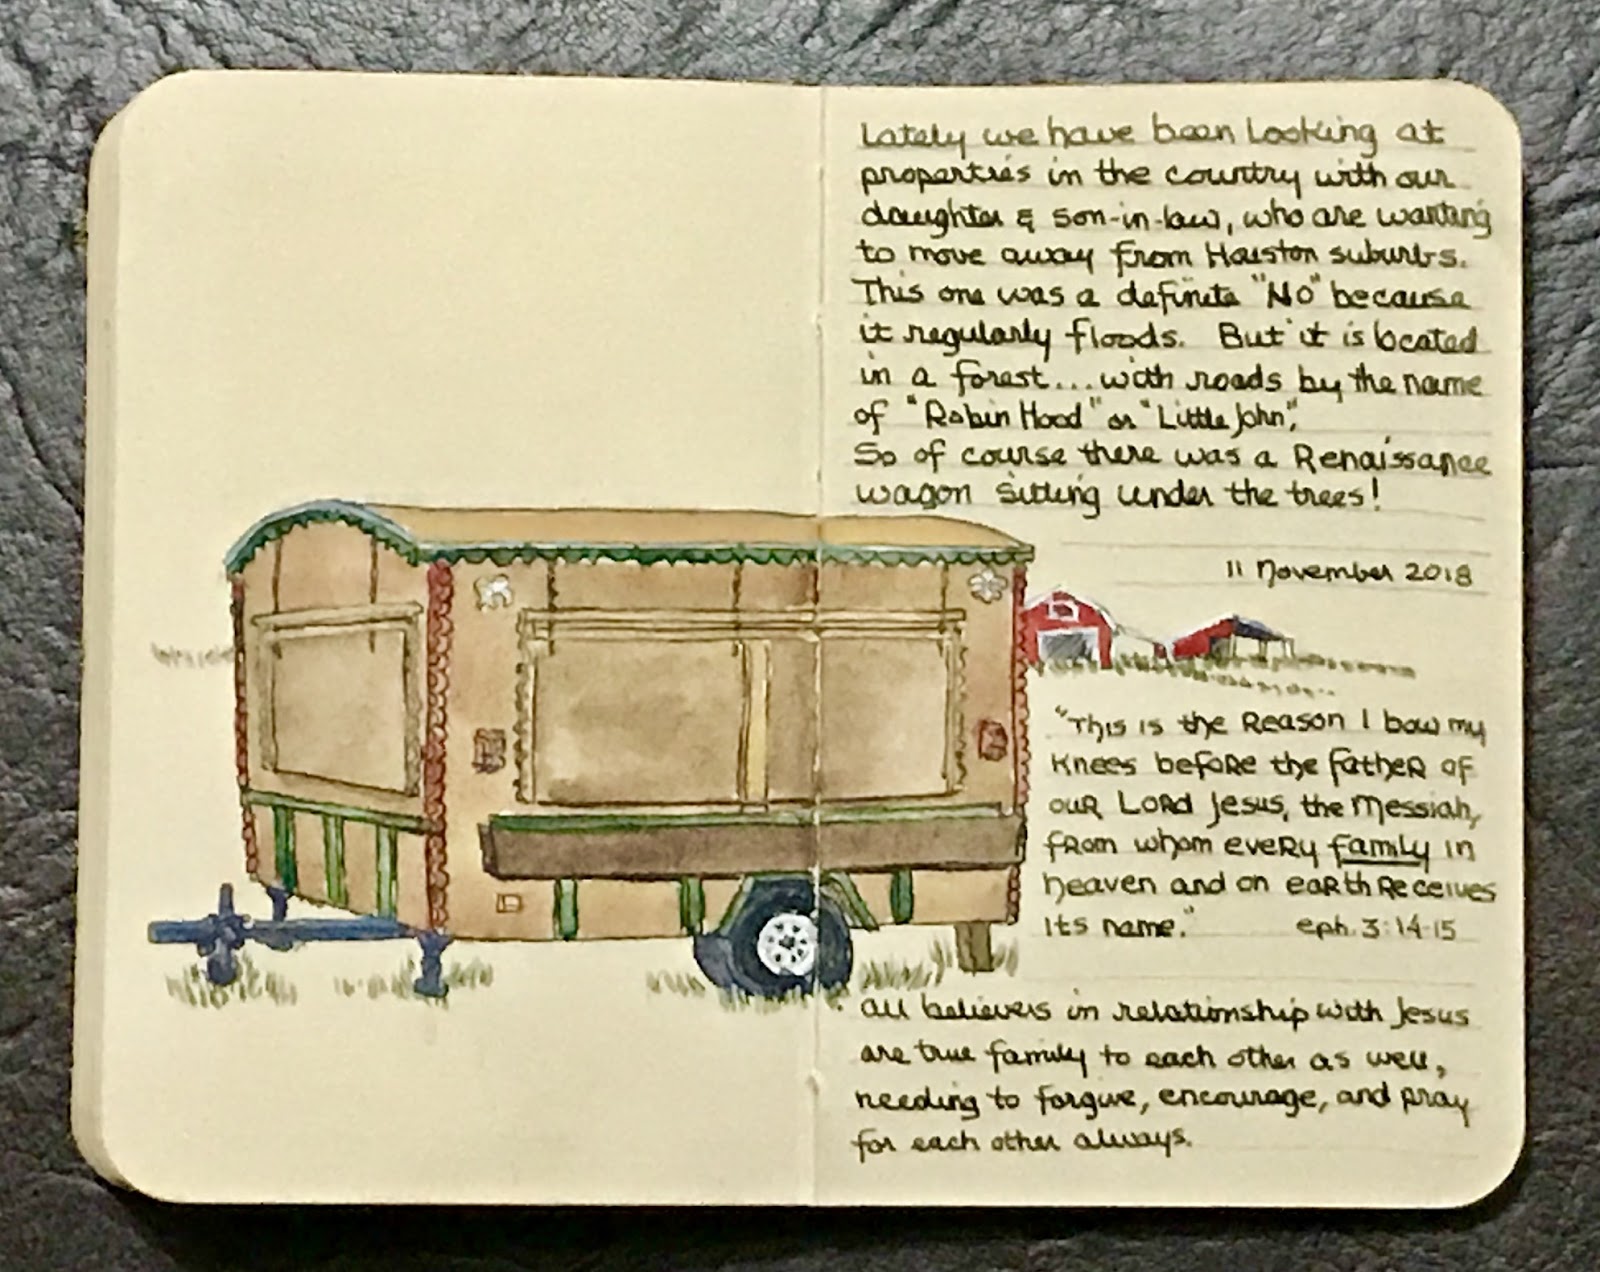 Lately we have been looking at
properties in the country with our
daughter & son-in-law, who are wanting
to move away from Houston suburbs.
This one was a definite "No" because
it regularly floods. But it is located
in a forest...with roads by the name
of "Robin Hood" or "Little John",
So of course there was a Renaissance
wagon sitting under the trees!
11 November 2018
"This is the Reason I bow my
knees before the father of
our Lord Jesus, the Messiah,
from whom every family in
heaven and on earth receives
its name." eph. 3:14-15
All believers in relationship with Jesus
are true family to each other as well,
needing to forgive, encourage, and pray
for each other always.